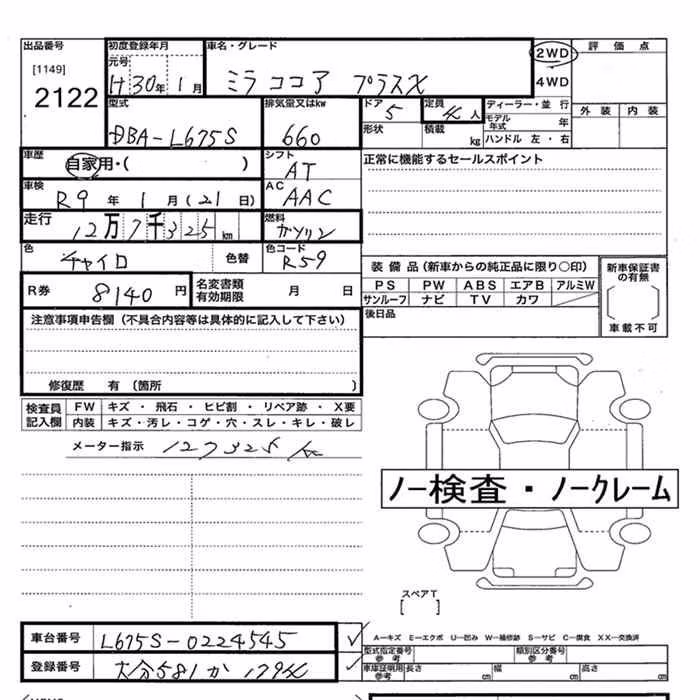 出品番号
[1149]
2122
初度登録年月
元号
H 30年 1月
車名・グレード
ミラ ココア プラスX
2WD
4WD
評価点
外装 内装
型式
DBA-L675S
排気量又はkw
660
ドア
5
形状
定員
人
積載
kg
ディーラー・並行
モデル年式 年
ハンドル 左・右
車歴
自家用・( )
シフト
AT
正常に機能するセールスポイント
車検
R9 年 1 月 (21 日)
AC
AAC
走行
12万7千325km
燃料
ガソリン
色
チャイロ
色替
色コード
R59
装備品(新車からの純正品に限り○印)
PS PW ABS エアB アルミW
サンルーフ ナビ TV カワ
後日品
新車保証書の有無
車載不可
R券
8140円
名変書類有効期限 月 日
注意事項申告欄(不具合内容等は具体的に記入して下さい)
修復歴 有 〔箇所 〕
検査員記入欄
FW キズ・飛石・ヒビ割・リペア跡・X要
内装 キズ・汚レ・コゲ・穴・スレ・キレ・破レ
メーター指示 127325 km
ノー検査・ノークレーム
スペアT
[ ]
車台番号
L675S-0224545
登録番号
大分581か
A―キズ E―エクボ U―凹み W―補修跡 S―サビ C―腐食 XX―交換済
型式指定番号 参考
類別区分番号 参考
車庫証明用 参考
長さ cm 幅 cm 高さ cm